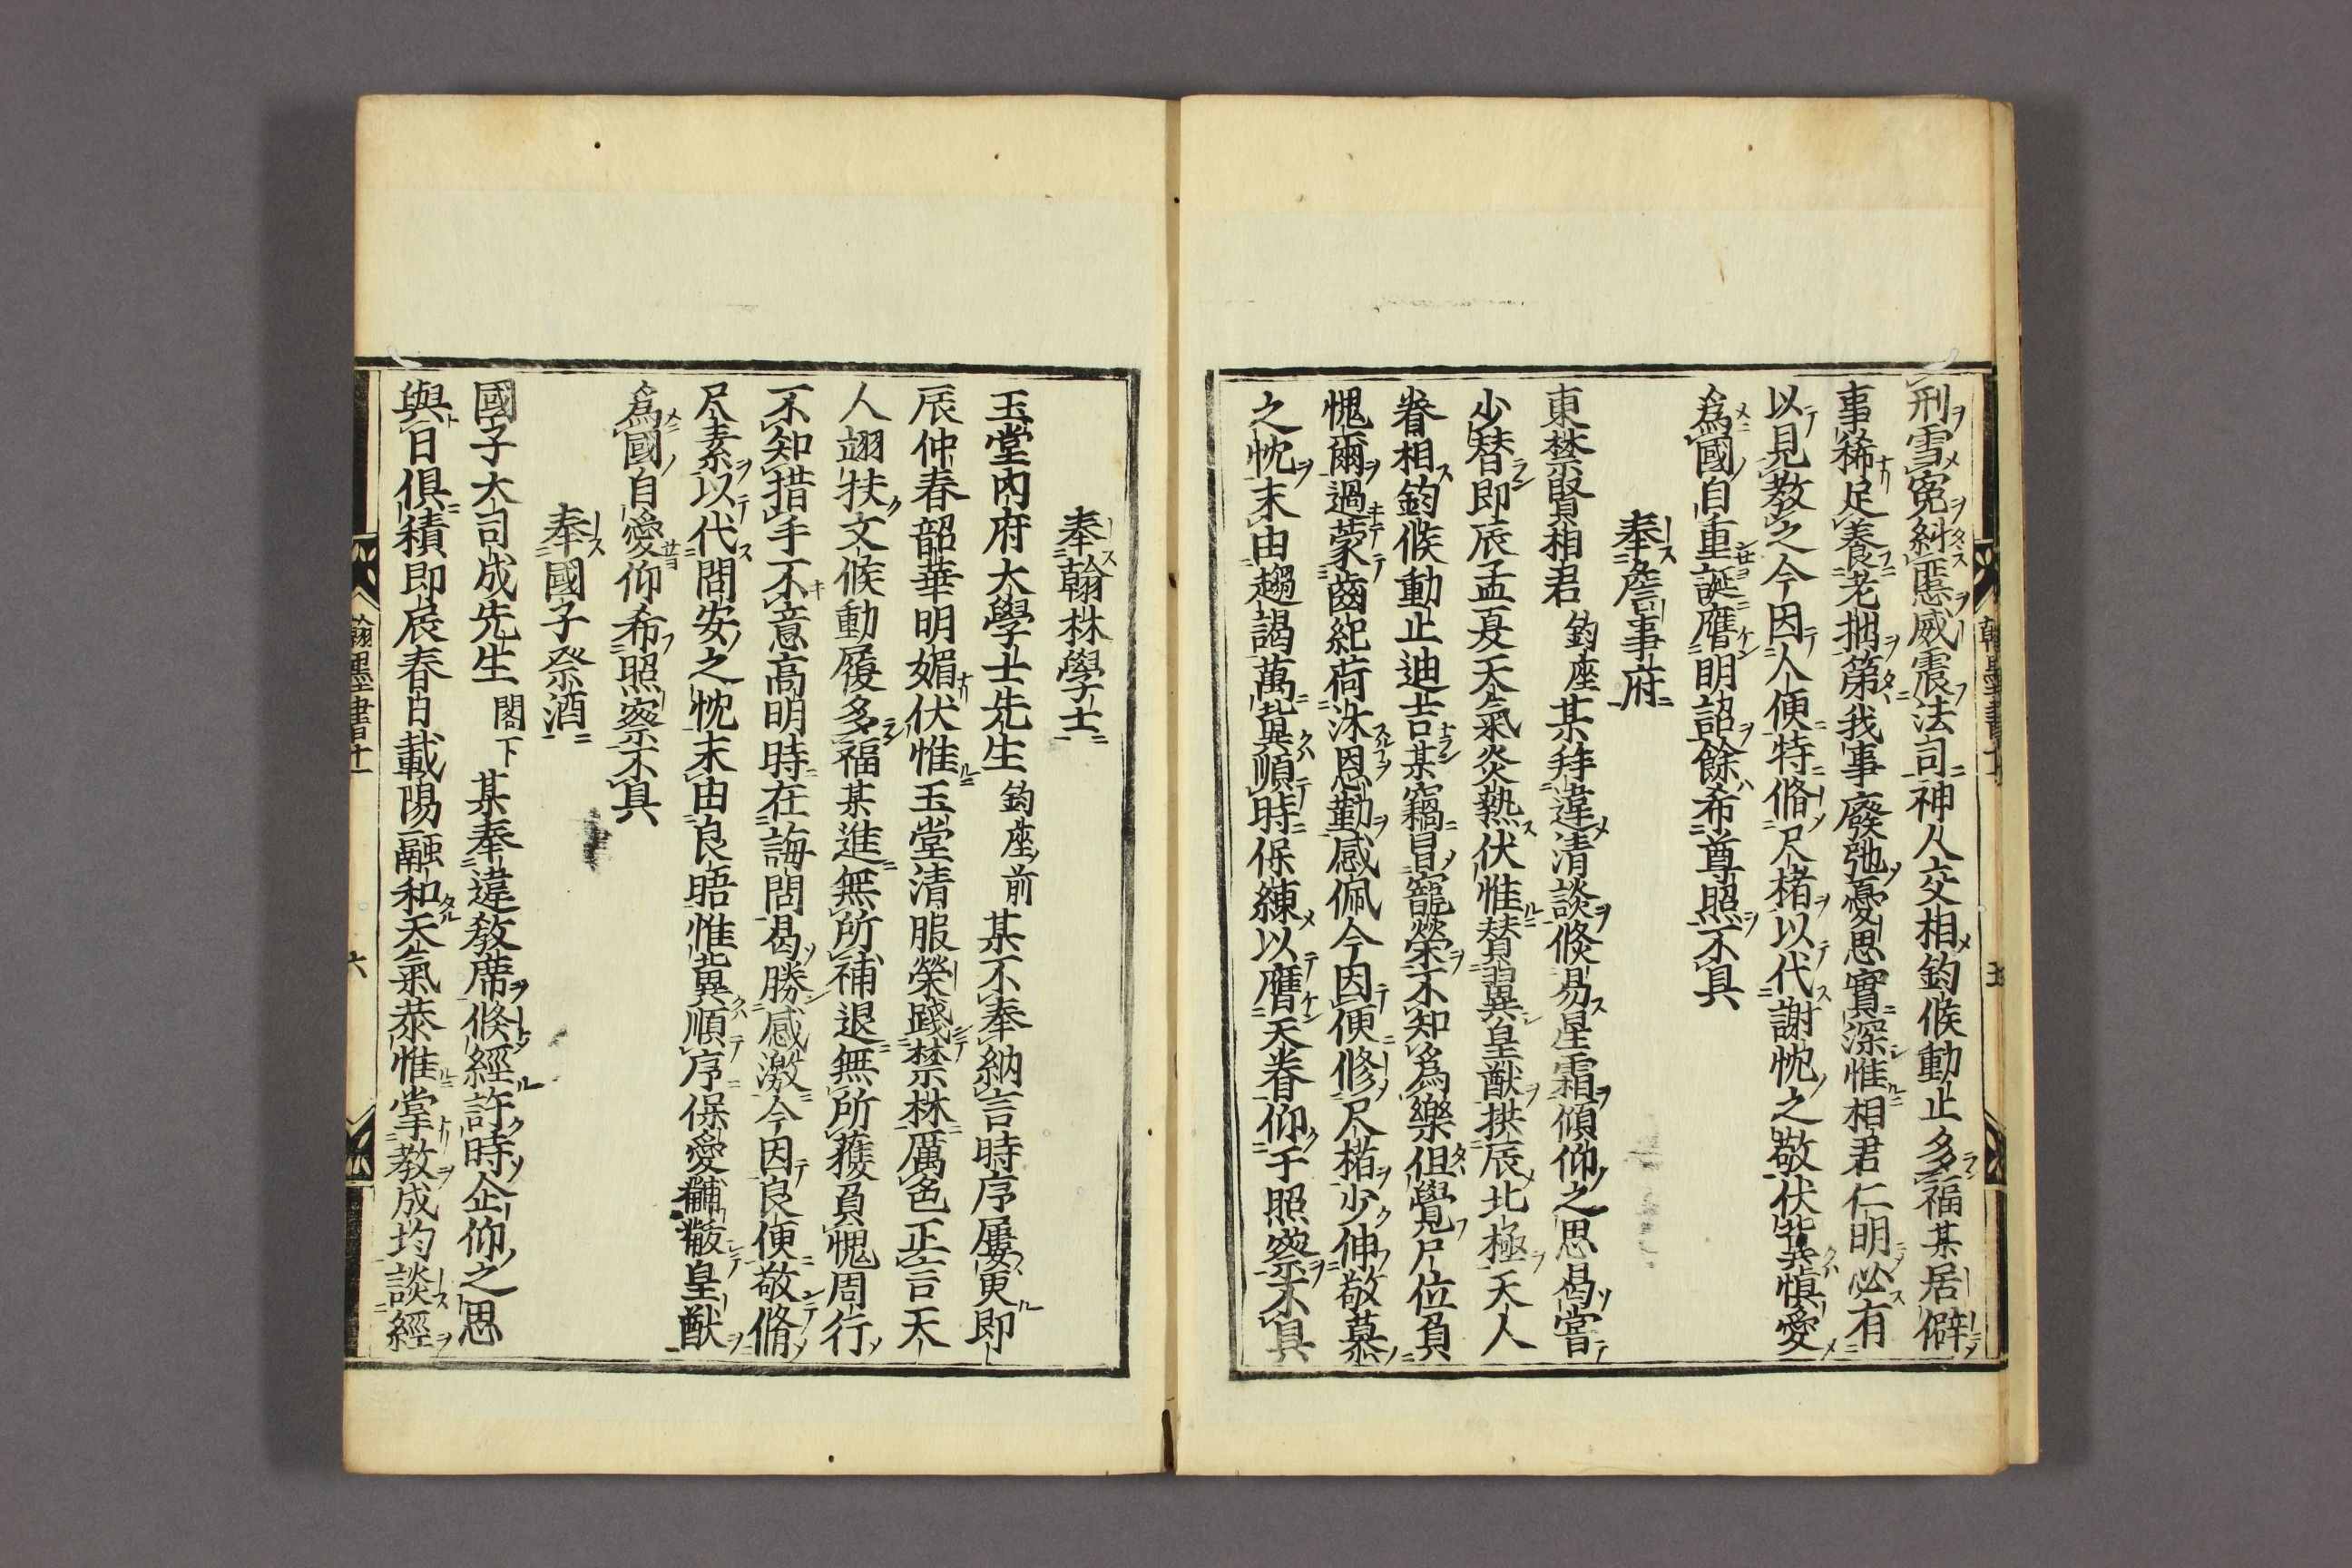 刑雪冤糾慝威震法司神人交相鈞候動止多福某居僻
事稀足養老拙第我事廢弛憂思實深惟相君仁明必有
以見教之今因人便特脩尺楮以代謝忱之敬伏冀慎愛
爲國自重誕膺明詔餘希尊照不具
奉詹事府
東禁賢相君鈞座某拜違清談倏易星霜傾仰之思曷嘗
少替即辰孟夏天氣炎熱伏惟賛翼皇猷拱辰北極天人
眷相鈞候動止迪吉某竊冒寵榮不知爲樂但覺尸位負
愧爾過蒙齒紀荷沐恩勤感佩今因便修尺楮少伸敬慕
之忱末由趨謁萬冀順時保練以膺天眷仰于照察不具
奉翰林學士
玉堂内府大學士先生鈞座前某不奉納言時序屢更即
辰仲春韶華明媚伏惟玉堂清服榮踐禁林厲色正言天
人翊扶文候動履多福某進無所補退無所獲負愧周行
不知措手不意高明時在誨問曷勝感激今因良便敬脩
尺素以代問安之忱末由良晤惟冀順序保愛黼黻皇猷
爲國自愛仰希照察不具
奉國子祭酒
國子大司成先生閣下某奉違敎席倏經許時企仰之思
與日俱積即辰春日載陽融和天氣恭惟掌教成均談經
翰墨書十一
六